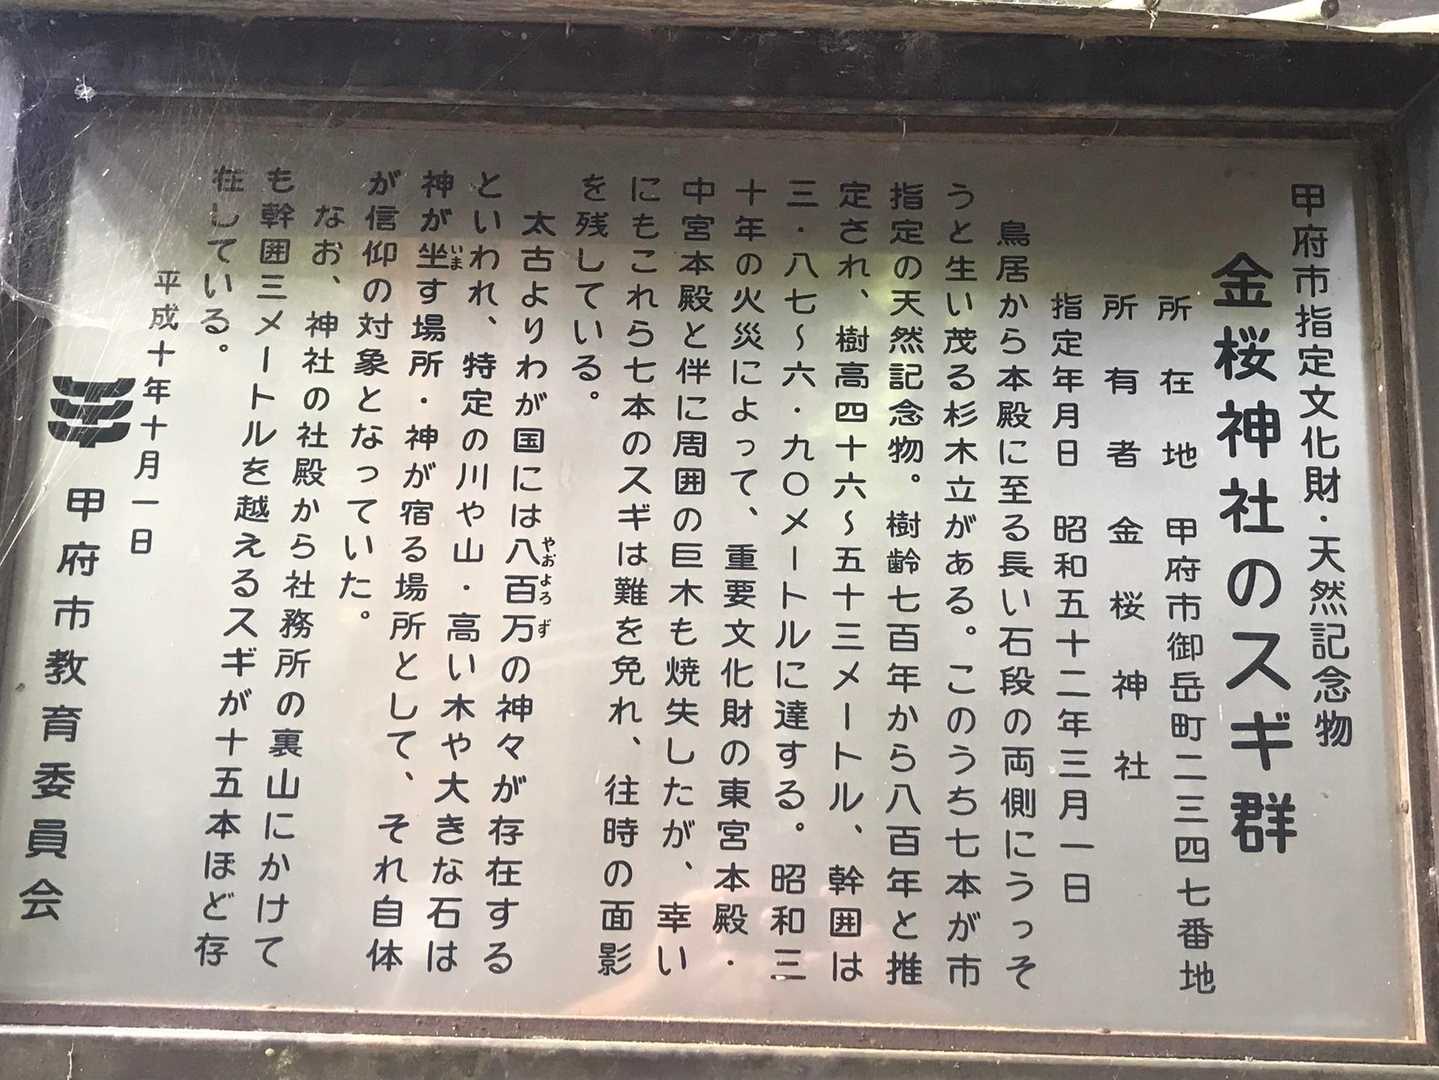 甲府市指定文化財・天然記念物
金桜神社のスギ群
所在地 甲府市御岳町二三四七番地
所有者 金桜神社
指定年月日 昭和五十二年三月一日
鳥居から本殿に至る長い石段の両側にうっそ
うと生い茂る杉木立がある。このうち七本が市
指定の天然記念物。樹齢七百年から八百年と推
定され、樹高四十六～五十三メートル、幹囲は
三・八七～六・九〇メートルに達する。昭和三
十年の火災によって、重要文化財の東宮本殿・
中宮本殿と伴に周囲の巨木も焼失したが、幸い
にもこれら七本のスギは難を免れ、往時の面影
を残している。
太古よりわが国には八百万の神々が存在する
やおよろず
といわれ、特定の川や山・高い木や大きな石は
神が坐す場所・神が宿る場所として、それ自体
いま
が信仰の対象となっていた。
なお、神社の社殿から社務所の裏山にかけて
も幹囲三メートルを越えるスギが十五本ほど存
在している。
平成十年十月一日
甲府市教育委員会